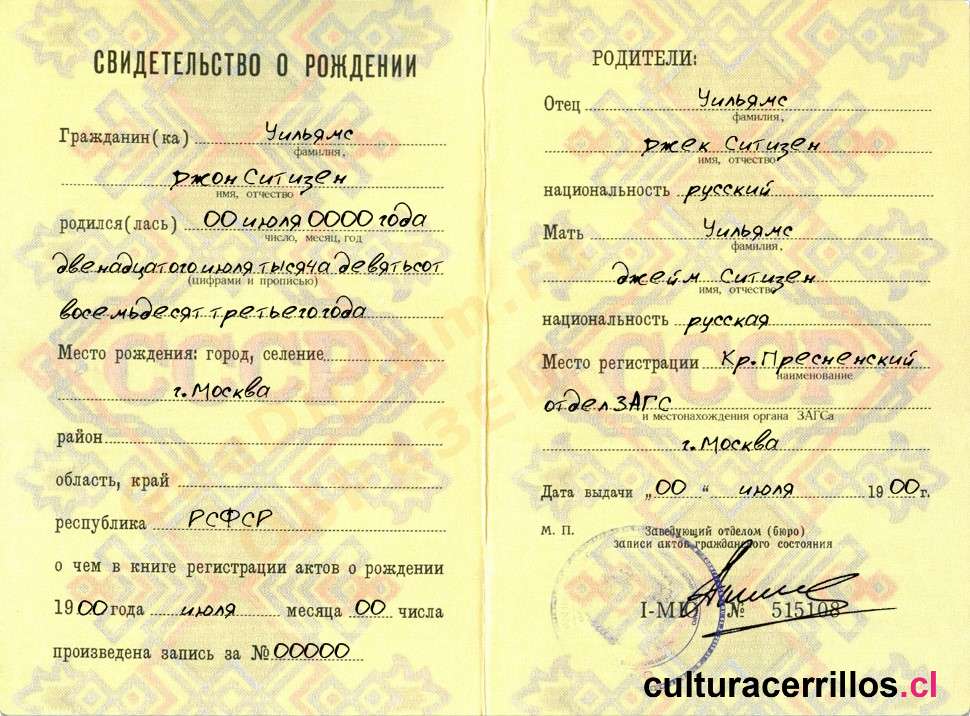 СВИДЕТЕЛЬСТВО О РОЖДЕНИИ
Гражданин(ка) Уильямс
фамилия,
Джон Ситизен
имя, отчество
родился(лась) 00 июля 0000 года
число, месяц, год
двенадцатого июля тысяча девятьсот
(цифрами и прописью)
восемьдесят третьего года
Место рождения: город, селение
г. Москва
район
область, край
республика РСФСР
о чем в книге регистрации актов о рождении
1900 года июля месяца 00 числа
произведена запись за № 00000
РОДИТЕЛИ:
Отец Уильямс
фамилия,
Джек Ситизен
имя, отчество
национальность русский
Мать Уильямс
фамилия,
Джейм Ситизен
имя, отчество
национальность русская
Место регистрации Кр. Пресненский
наименование
отдел ЗАГС
и местонахождения органа ЗАГСа
г. Москва
Дата выдачи „00" июля 1900г.
М. П. Заведующий отделом (бюро)
записи актов гражданского состояния
I-МЮ № 515108
СССР СССР
culturacerrillos.cl